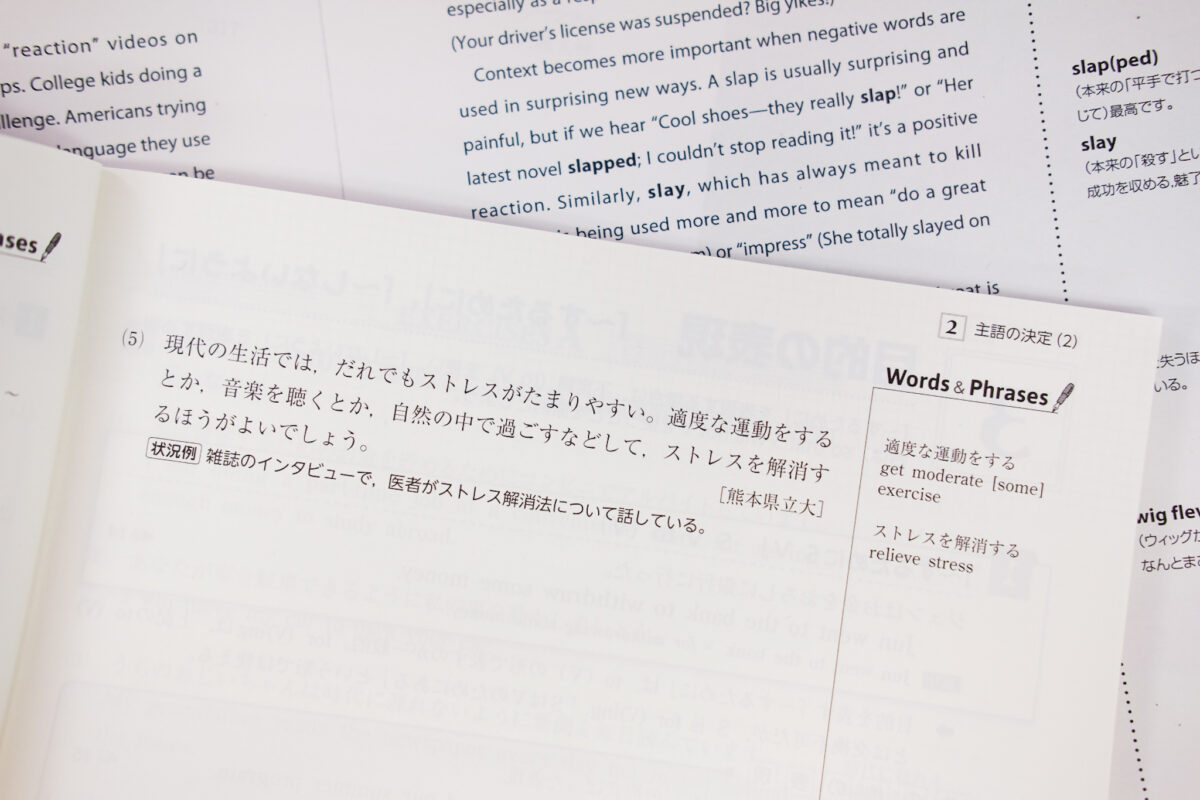 “reaction” videos on
ps. College kids doing a
llenge. Americans trying
nguage they use
n be
especially as a
(Your driver’s license was suspended? Big yikes!)
Context becomes more important when negative words are
used in surprising new ways. A slap is usually surprising and
painful, but if we hear “Cool shoes—they really slap!” or “Her
latest novel slapped; I couldn’t stop reading it!” it’s a positive
reaction. Similarly, slay, which has always meant to kill
being used more and more to mean “do a great
or “impress” (She totally slayed on
eat is
slap(ped)
(本来の「平手で打つ
じて)最高です。
slay
(本来の「殺す」とい
成功を収める,魅了
失うほ
いる。
wig flew
(ウィッグが
なんとまあ
ases
2 主語の決定(2)
(5) 現代の生活では,だれでもストレスがたまりやすい。適度な運動をする
とか,音楽を聴くとか,自然の中で過ごすなどして,ストレスを解消す
るほうがよいでしょう。
[熊本県立大]
状況例 雑誌のインタビューで,医者がストレス解消法について話している。
Words & Phrases
適度な運動をする
get moderate [some]
exercise
ストレスを解消する
relieve stress